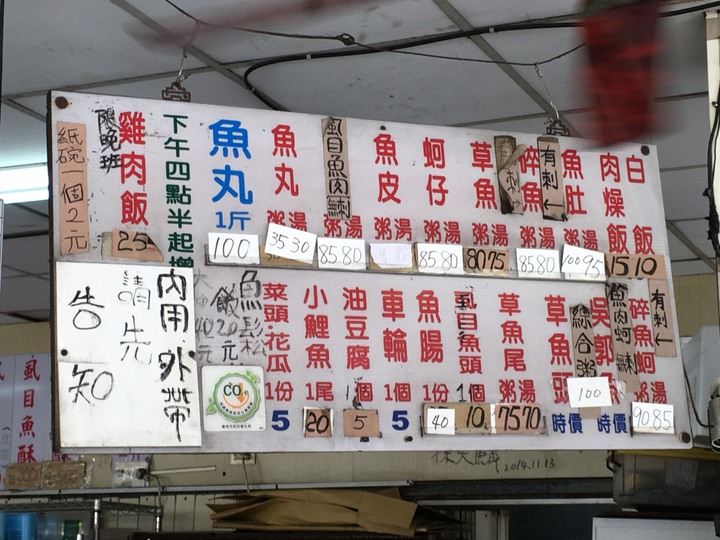 白飯 10
肉燥飯 15
魚肚 粥湯 100 95
有刺↓
碎魚 粥湯 85 80
草魚 粥湯 80 75
蚵仔 粥湯 85 80
魚皮 粥湯
虱目魚肉鯟 85 80
魚丸 粥湯 35 30
魚丸 1斤 100
下午四點半起增
雞肉飯 25
限晚班
紙碗一個2元
有刺↓
碎魚蚵 粥湯 90 85
吳郭魚 時價
綜合粥 100
草魚頭 時價
草魚尾 粥湯 75 70
虱目魚頭 1個 10
魚腸 1份 40
車輪 1個 5
油豆腐 1個 5
小鯉魚 1尾 20
菜頭·花瓜 1份 5
魚鬆
飯20元
40元
CO2
內用·外帶
請先
告知
虱目魚酥
2014.11.13